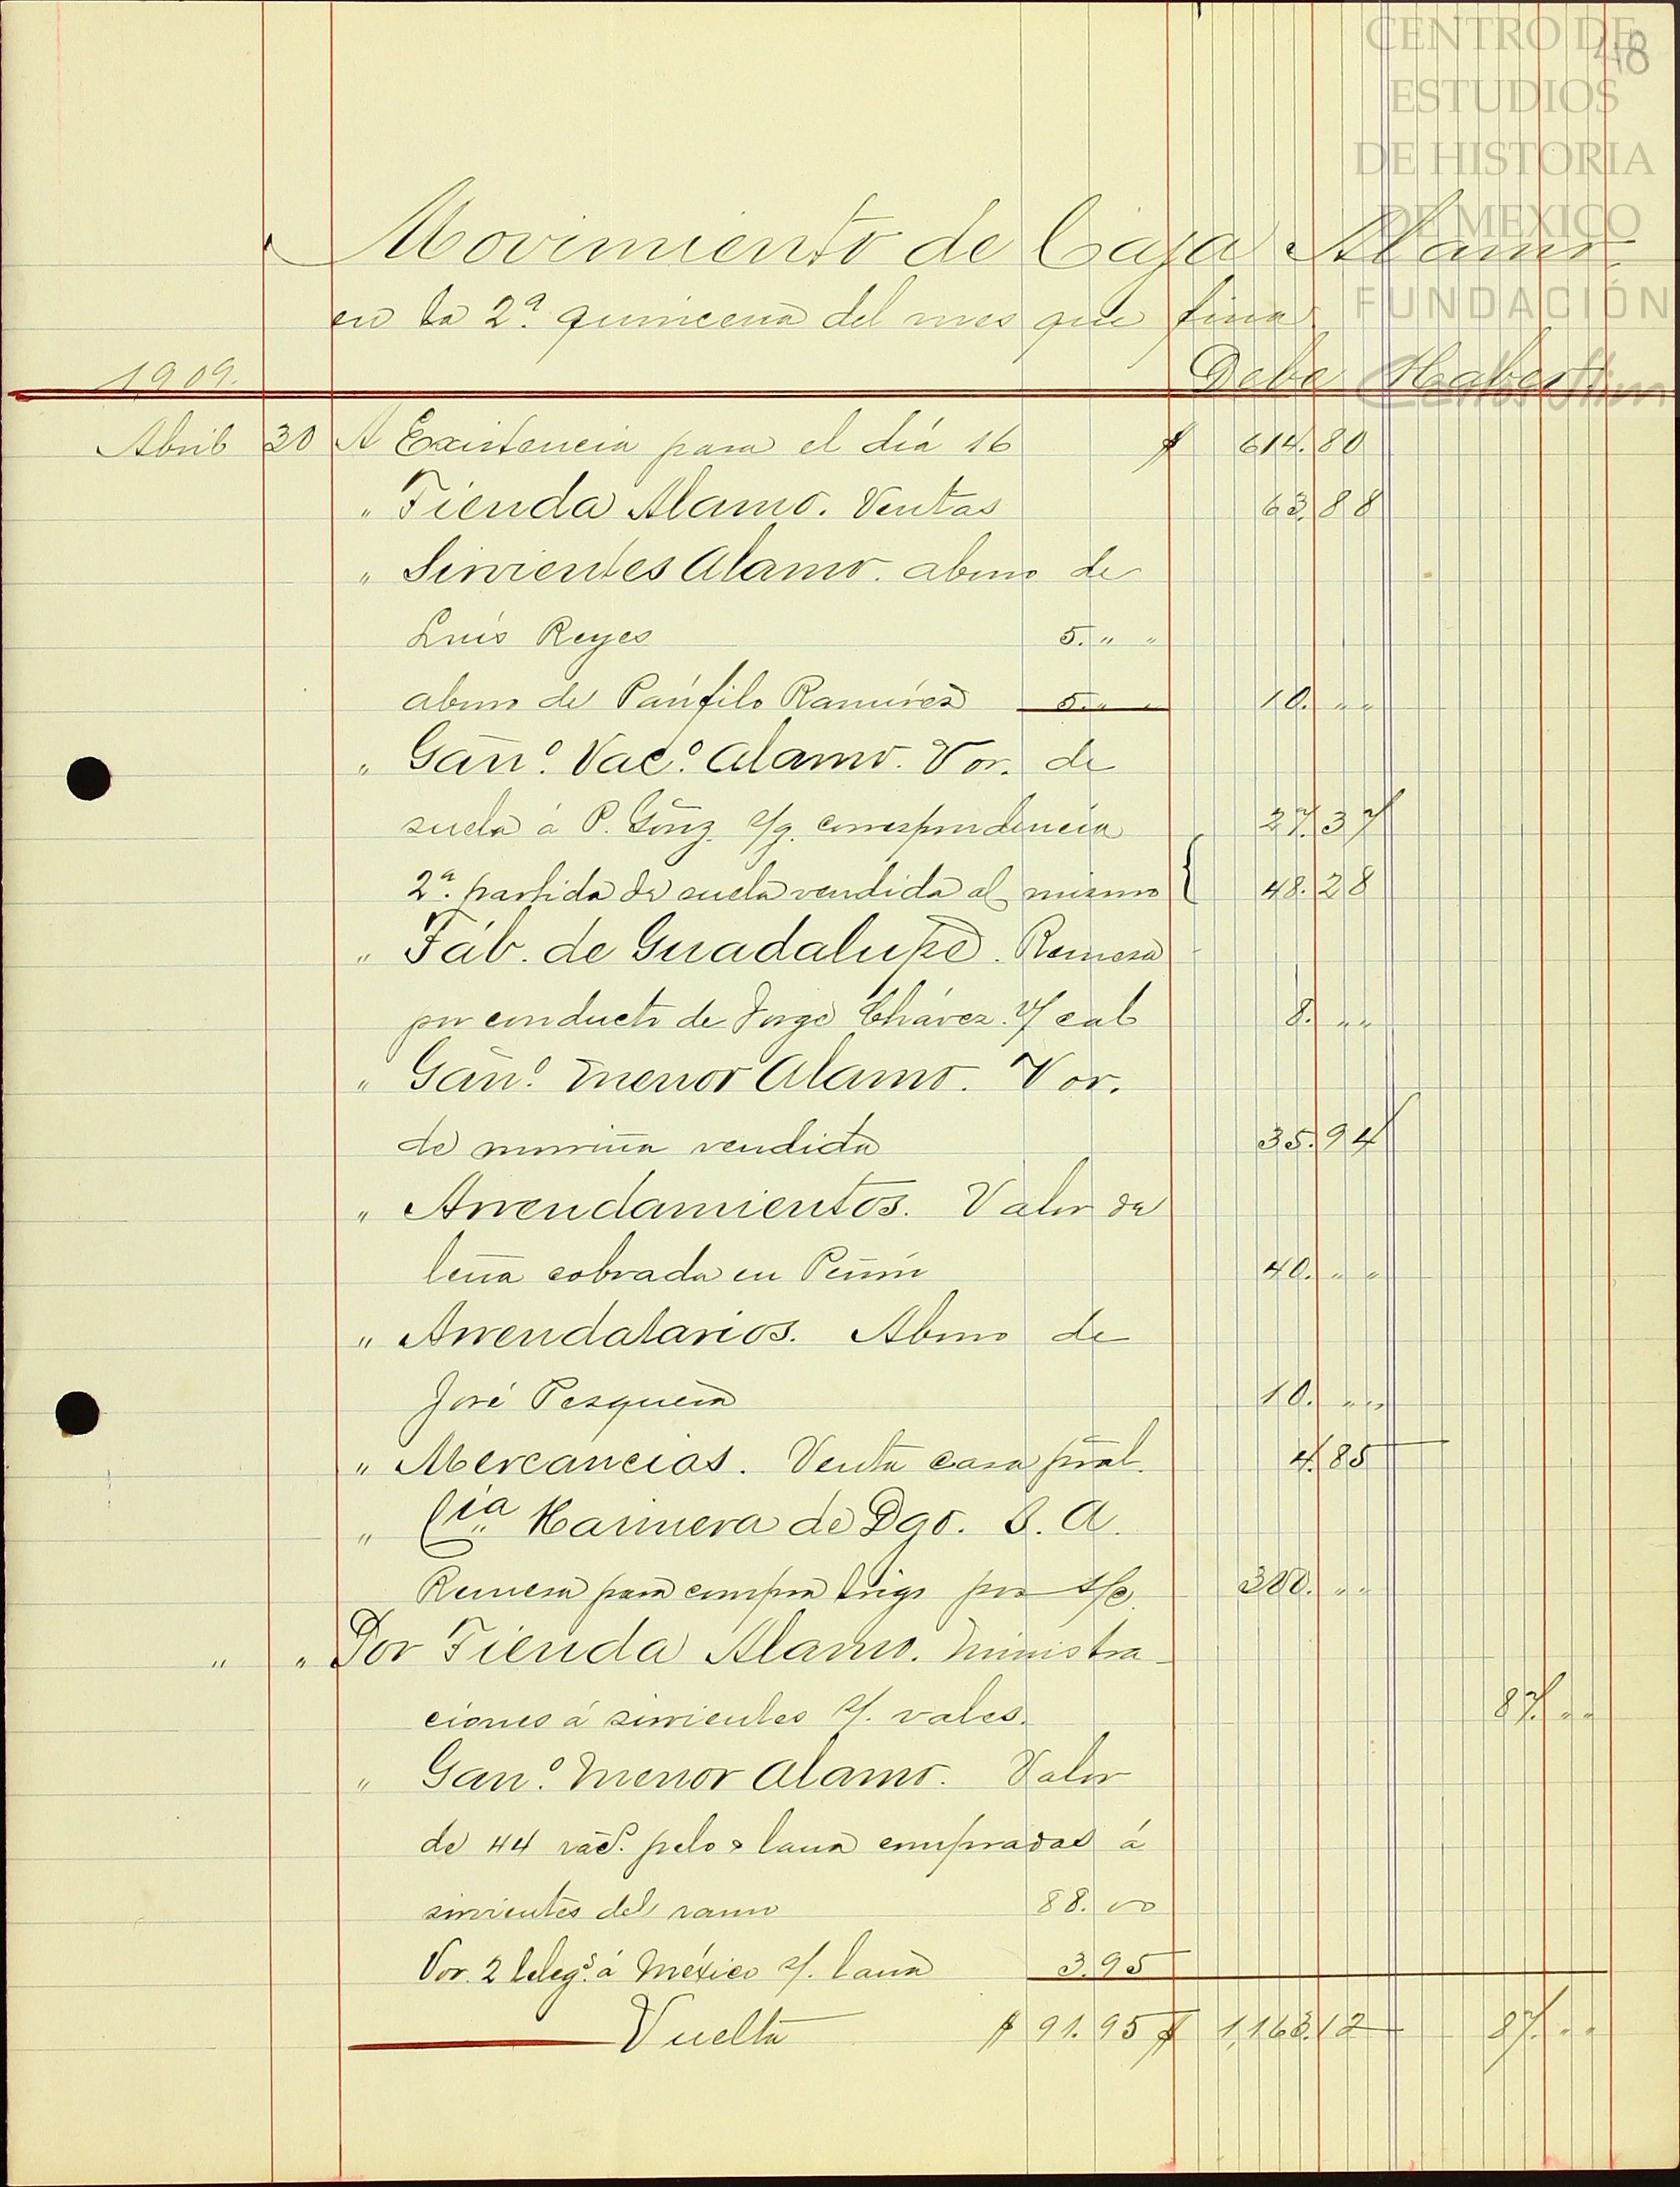 CENTRO DE
ESTUDIOS
DE HISTORIA
DE MEXICO
FUNDACIÓN
Carlos Slim
48
Movimiento de Caja Alamo
en la 2ª quincena del mes que fina
1909. Debe Haber
Abril 30 A Existencia para el día 16 $ 614.80
" Tienda Alamo. Ventas 63.88
" Sirvientes Alamo. abono de
Luis Reyes 5. " "
abono de Pánfilo Ramírez 5. " " 10. " "
" Gan̄º. Vacº. Alamo. Vor. de
suela á P. Gonz. s/g. correspondencia 27.37
2ª. partida de suela vendida al mismo { 48.28
" Fáb. de Guadalupe. Remesa
por conducto de Jorge Chávez. v/ cal 8. " "
" Gan̄º. menor Alamo. Vor.
de morriña vendida 35.94
" Arrendamientos. Valor de
leña cobrada en Peñón 40. " "
" Arrendatarios. Abono de
José Pesquera 10. " "
" Mercancias. Venta casa pral. 4.85
" Cía Harinera de Dgo. S. A.
Remesa para compra trigo por s/c. 300. " "
" " Por Tienda Alamo. ministra-
ciones á sirvientes s/. vales. 87. " "
" Ganº. menor Alamo. Valor
de 44 pelo y lana compradas á
sirvientes del ramo 88.00
Vor. 2 telegs. á México s/. lana 3.95
Vuelta $ 91.95 $ 1,163.12 87. " "